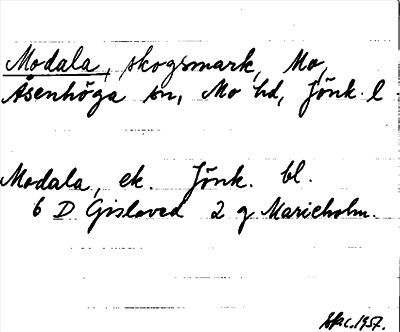 Modala, skogsmark, Mo,
Åsenhöga sn, Mo hd, Jönk. l.
Modala, ek. Jönk. bl.
6 D Gislaved 2 g Marieholm.
1957.